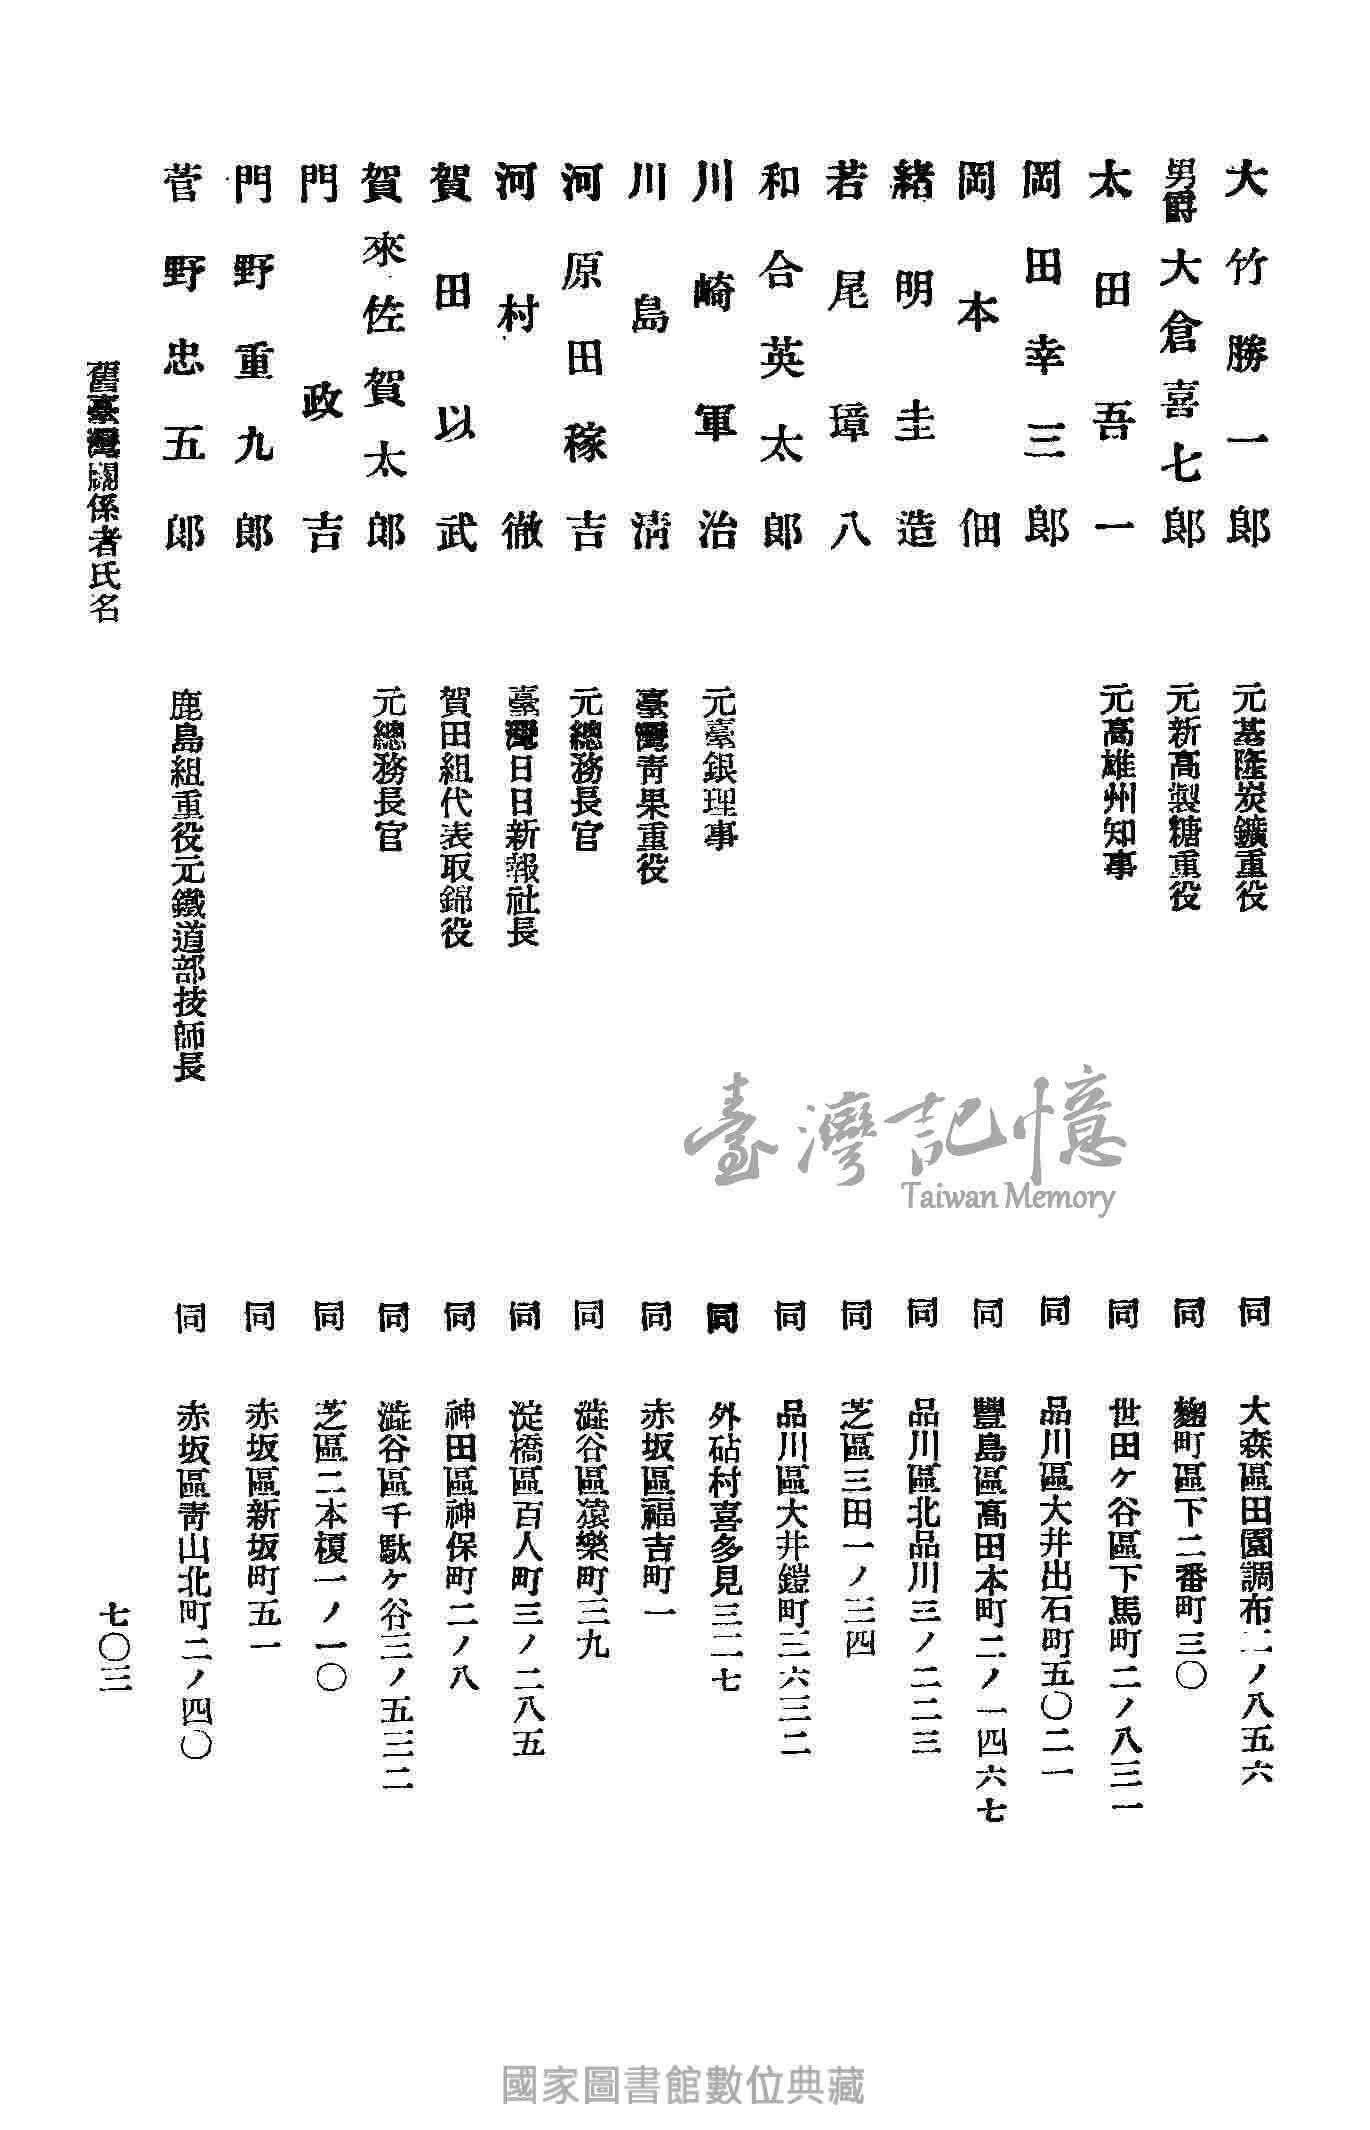 大竹勝一郎　元基隆炭鑛重役　同　大森區田園調布二ノ八五六
男爵大倉喜七郎　元新高製糖重役　同　麴町區下二番町三〇
太田吾一　元高雄州知事　同　世田ケ谷區下馬町二ノ八三一
岡田幸三郎　同　品川區大井出石町五〇二一
岡本佃　同　豐島區高田本町二ノ一四六七
緒明圭造　同　品川區北品川三ノ二二三
若尾璋八　同　芝區三田一ノ三四
和合英太郎　同　品川區大井鎧町三六三二
川崎軍治　元臺銀理事　同　外砧村喜多見三二七
川島淸　臺灣靑果重役　同　赤坂區福吉町一
河原田稼吉　元總務長官　同　澁谷區猿樂町三九
河村徹　臺灣日日新報社長　同　淀橋區百人町三ノ二八五
賀田以武　賀田組代表取錦役　同　神田區神保町二ノ八
賀來佐賀太郎　元總務長官　同　澁谷區千駄ケ谷三ノ五三二
門政吉　同　芝區二本榎一ノ一〇
門野重九郎　同　赤坂區新坂町五一
菅野忠五郎　鹿島組重役元鐵道部技師長　同　赤坂區靑山北町二ノ四〇
舊臺灣關係者氏名　七〇三
臺灣記憶
Taiwan Memory
國家圖書館數位典藏